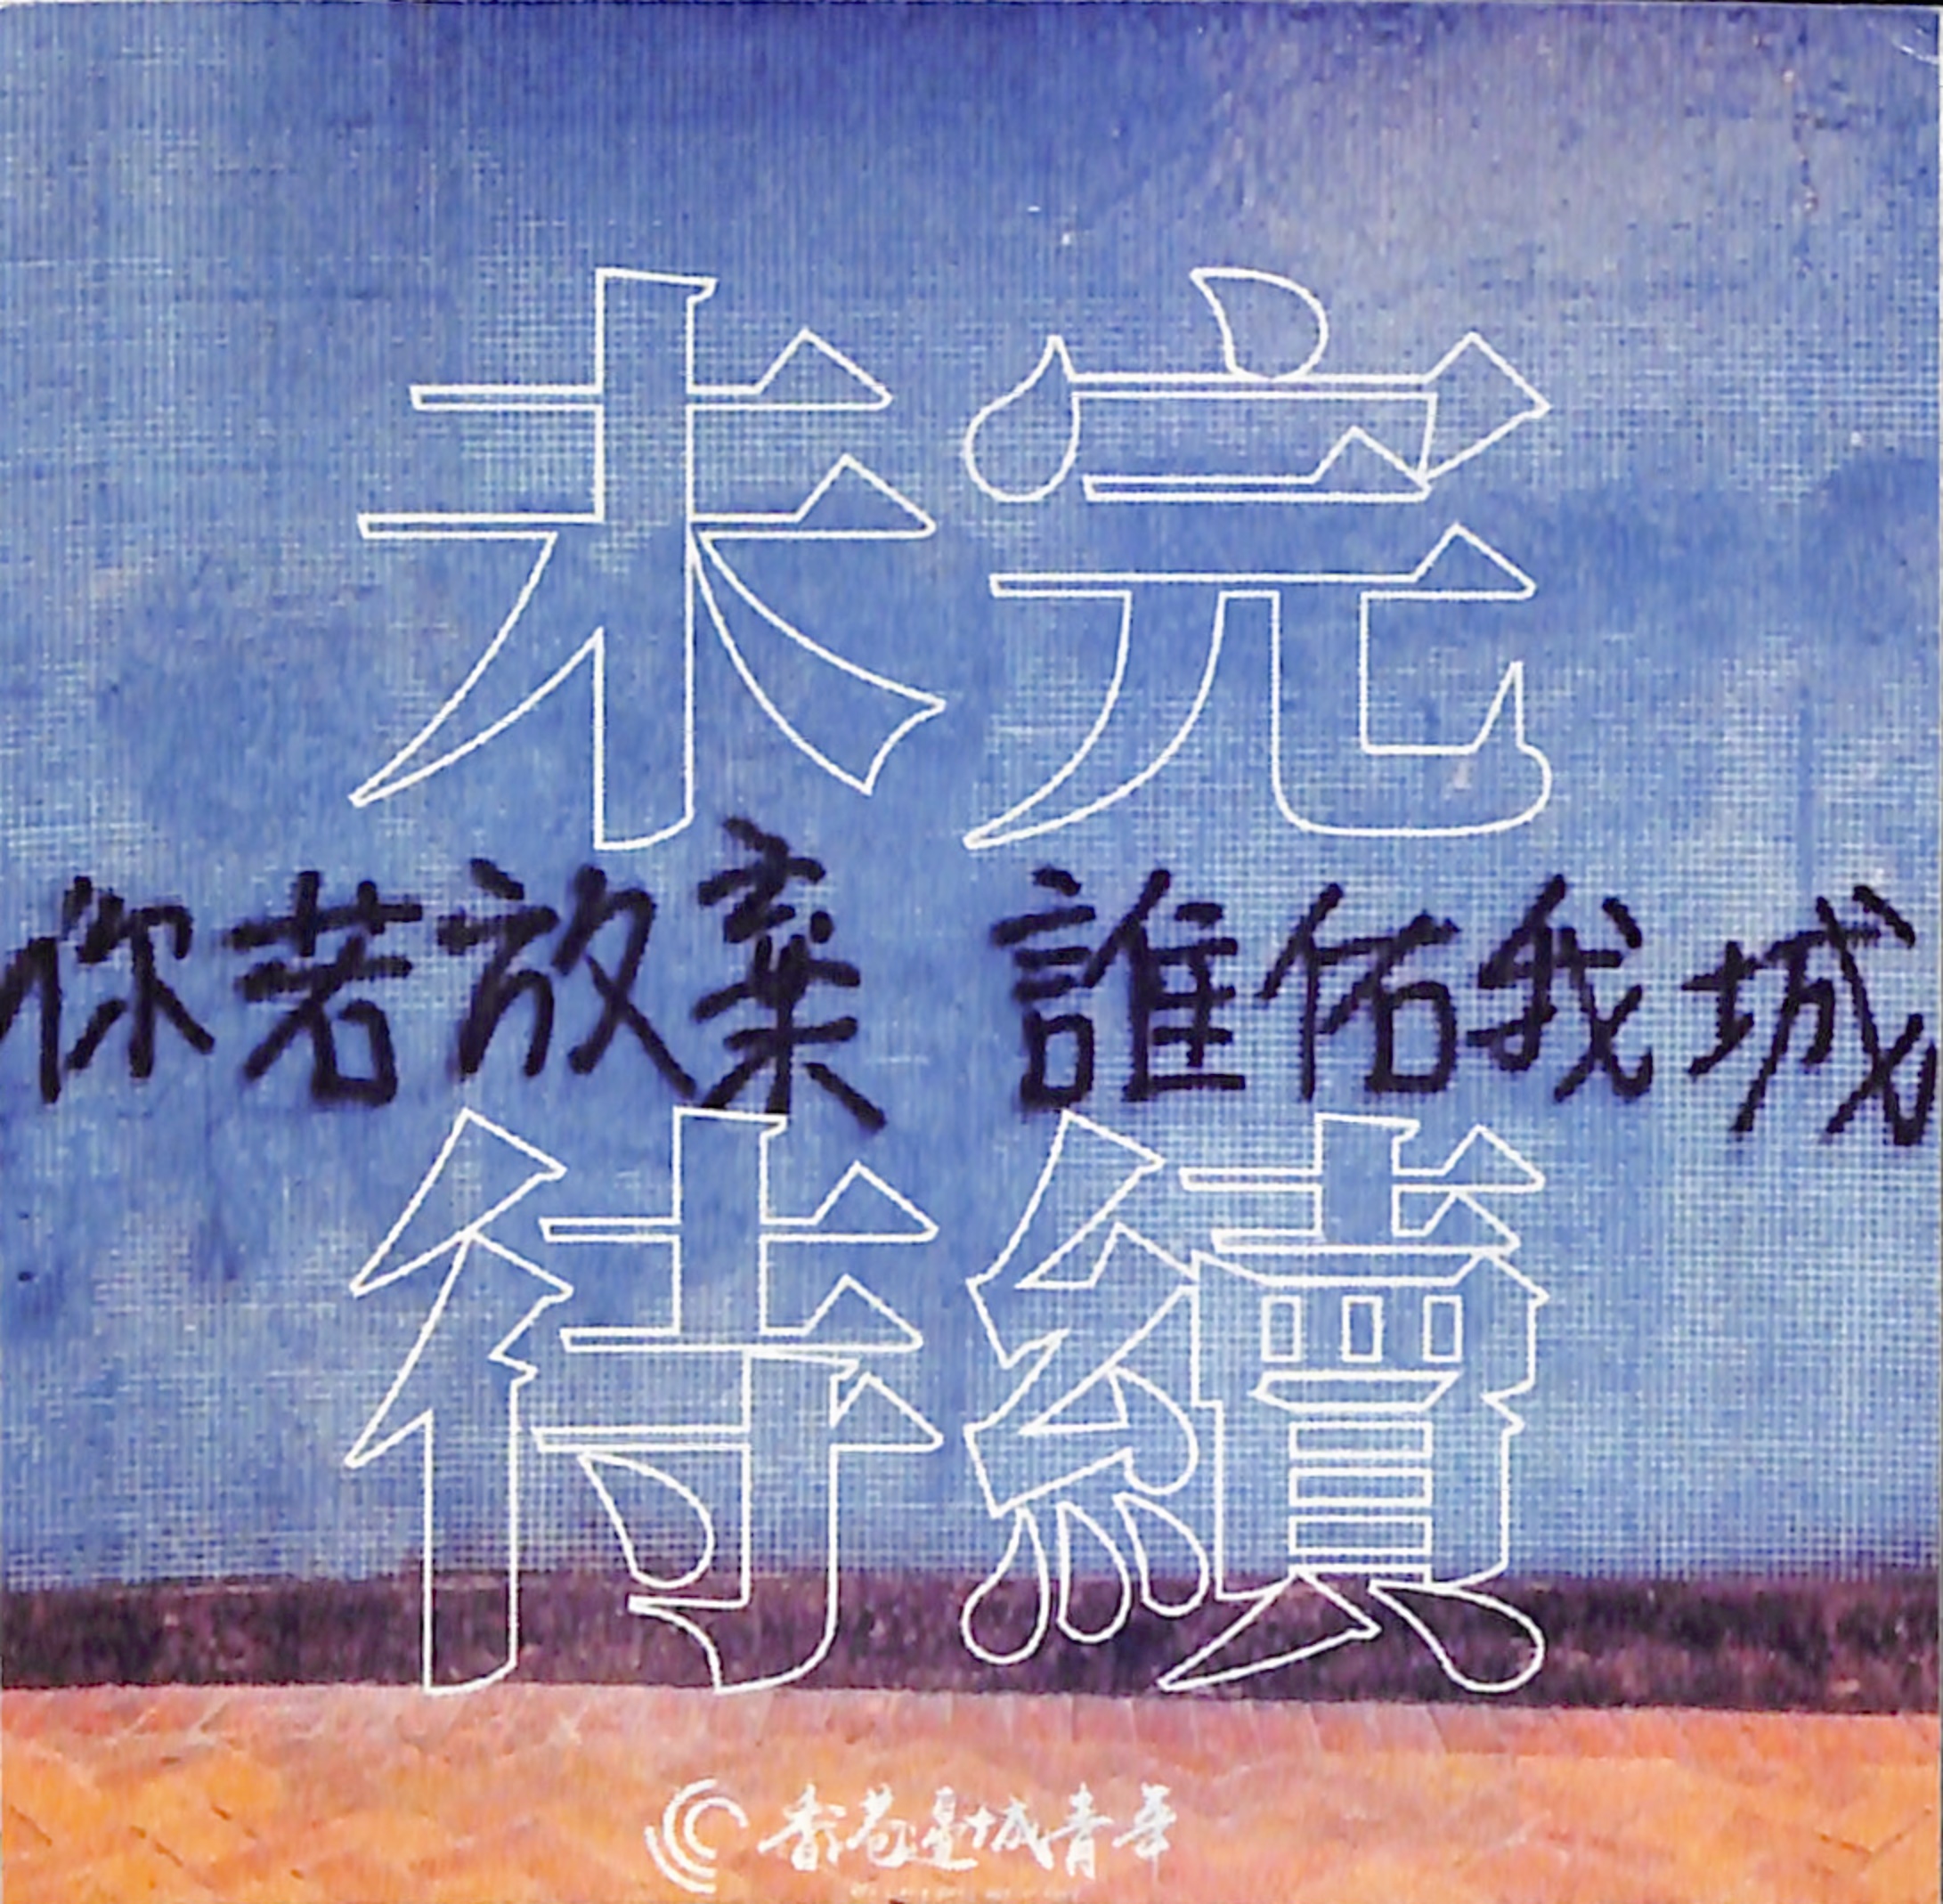 未完
你若放棄 誰佑我城
待續
香港邊城青年